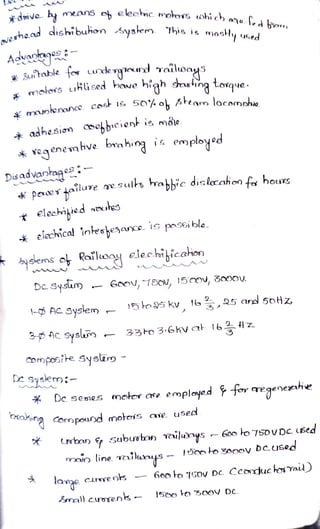 * drive by means of electric motors which are fed from
overhead distribution system This is mostly used
Advantages :-
* Suitable for underground railways
* motors utilised have high starting torque.
* maintenance cost is 50% of steam locomotive
* adhesion coefficient is more
* regenerative braking is employed
Disadvantages :-
* power failure results traffic dislocation for hours
* electrified routes
* electrical interference is possible.
* systems of Railway electrification
DC System - 600V, 750V, 1500V, 3000V.
1-φ AC System - 15 to 25 kV, 16 2/3, 25 and 50Hz,
3-φ AC System - 33 to 3.6KV at 16 2/3 Hz
composite System -
DC System:-
* DC series motor are employed & for regenerative
braking compound motors are used
* Urban & suburban railways - 600 to 750V DC Used
main line railways - 1500 to 3000V DC used
* large currents - 600 to 750V DC (conductor rail)
Small currents - 1500 to 300V DC